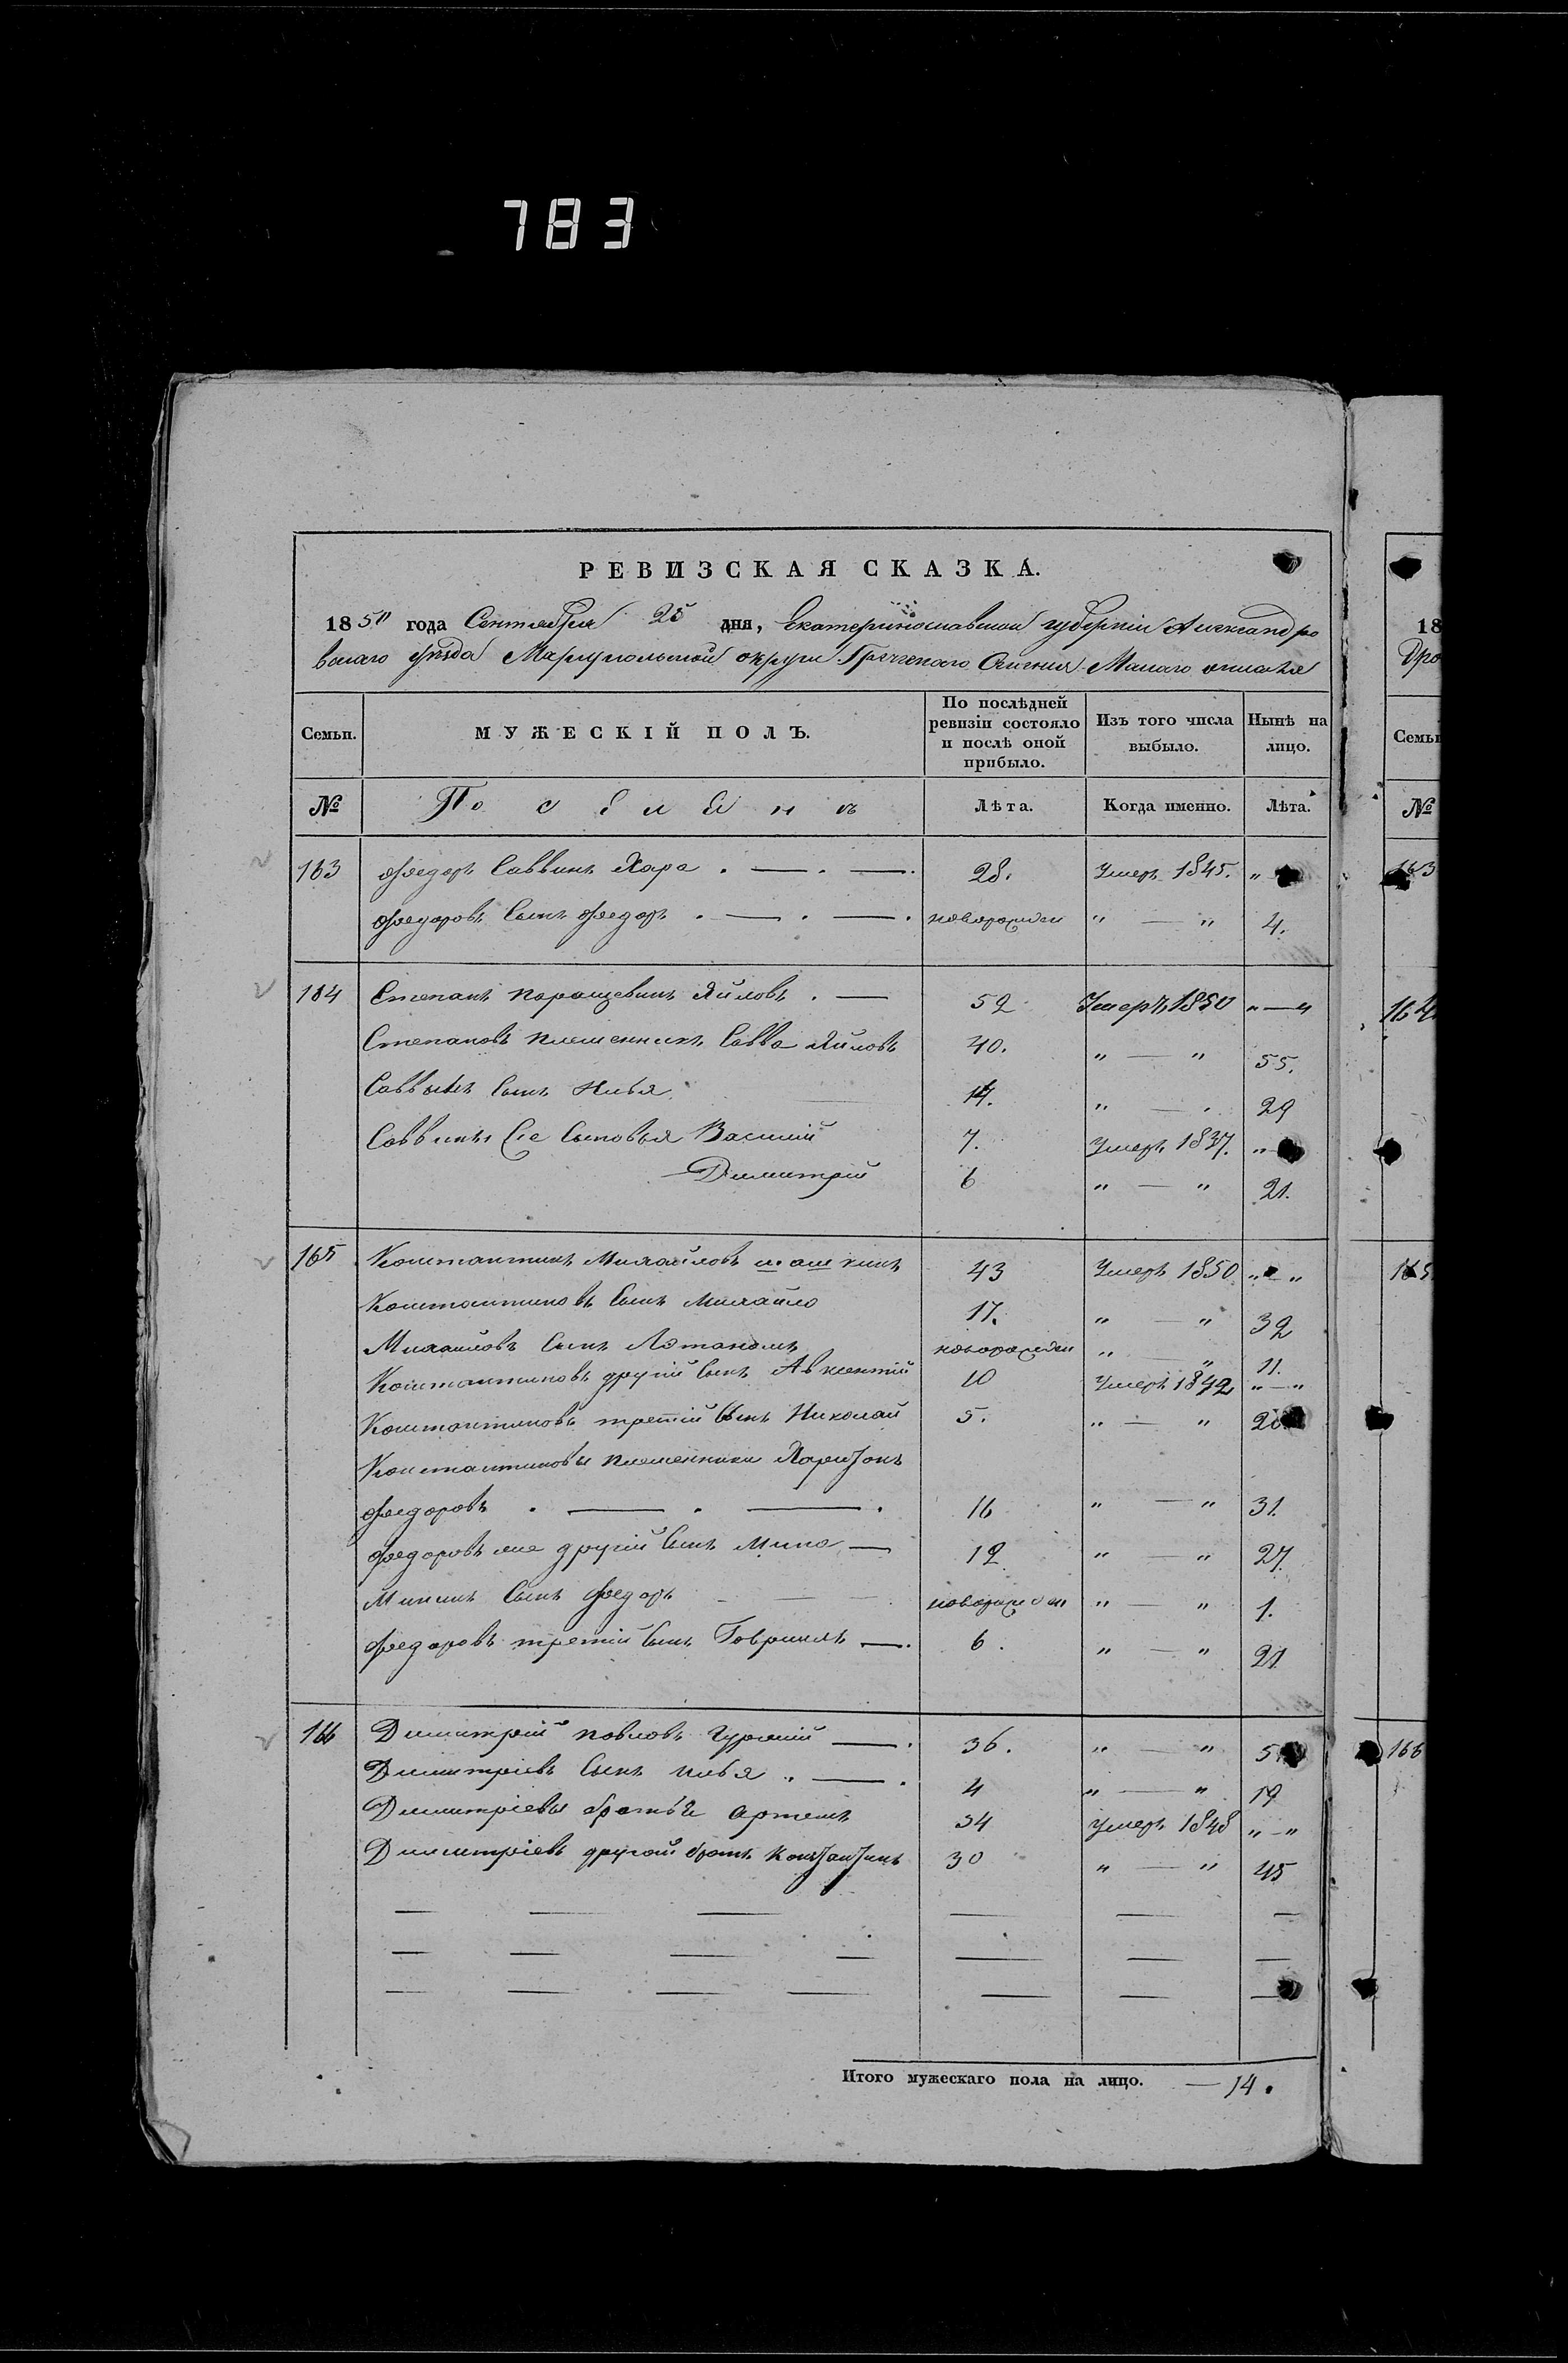 783
РЕВИЗСКАЯ СКАЗКА.
1850 года Сентября 25 дня, Екатеринославской губерніи Александро
вскаго уѣзда Маріупольской округи Греческаго Селенія Малаго
Семьи. МУЖЕСКІЙ ПОЛЪ. По послѣдней ревизіи состояло и послѣ оной прибыло. Изъ того числа выбыло. Нынѣ на лицо.
№ Поселянъ Лѣта. Когда именно. Лѣта.
163 Федоръ Саввинъ Хара 28. Умеръ 1845. "
Федоровъ сынъ Федоръ новорожден " — " 4.
164 Степанъ Паращевинъ Яйловъ 52 Умеръ 1850 " — "
Степановъ племенникъ Савва Яйловъ 40. " — " 55.
Саввинъ сынъ Илья 14. " — " 29
Саввины же сыновья Василій 7. Умеръ 1837. "
Димитрій 6 " — " 21.
165 Константинъ Михайловъ 43 Умеръ 1850 " — "
Константиновъ сынъ Михайло 17. " — " 32
Михайловъ сынъ новорожден " — " 11.
Константиновъ другій сынъ Авксентій 10 Умеръ 1842 " — "
Константиновъ третій сынъ Николай 5. " — " 20
Константиновы племенники Харитонъ
Федоровъ 16 " — " 31.
Федоровъ же другій сынъ Мина 12 " — " 27.
Мининъ сынъ Федоръ новорожден " — " 1.
Федоровъ третій сынъ Гавриилъ 6. " — " 21
166 Димитрій Павловъ 36. " — " 5
Димитріевъ сынъ Илья 4 " — " 19
Димитріевы братья Артемъ 34 Умеръ 1848 " — "
Димитріевъ другой братъ Константинъ 30 " — " 45
Итого мужескаго пола на лицо. — 14.
18
Дро
Семьи
№
163
164
165
166